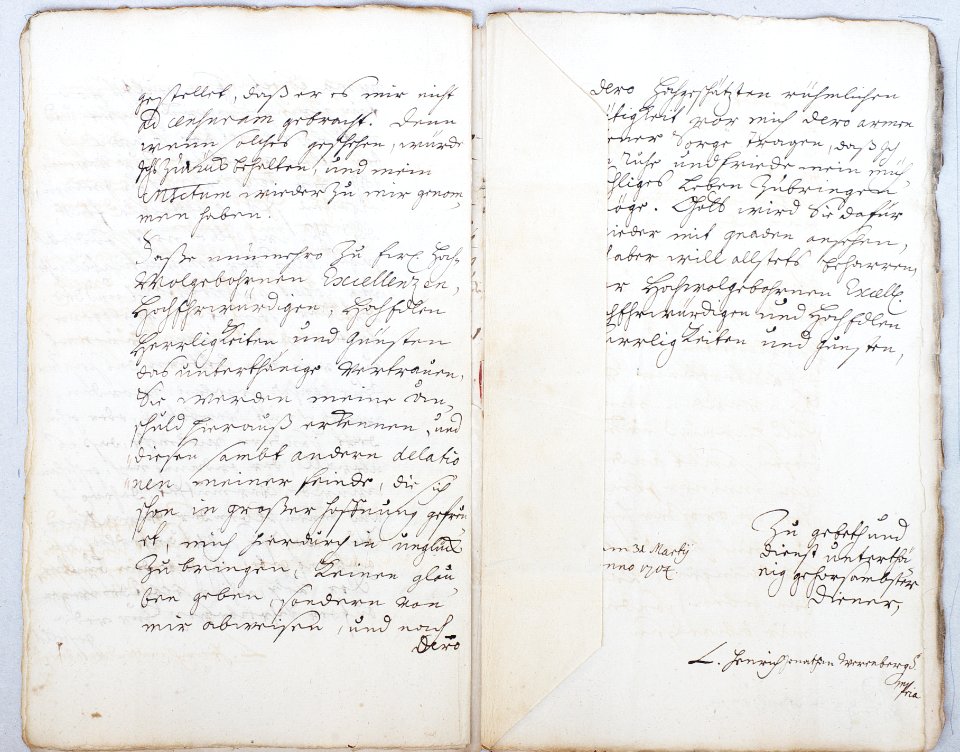 gestellet, daß er es mir nicht
ad censuram gebracht. Denn
wenn solches geschehen, würde
ichs zurück behalten, und mein
wieder zu mir genom-
men haben.
Daße nunmehro zu Hoch-
Wolgebohrnen Excellenzen,
HochEhrwürdigen, HochEdlen
Herrligkeiten und Gunsten
das unterthänige Vertrauen,
Sie werden meine Un-
schuld hierauß erkennen, und
diesen sambt andern delatio
nen meiner Feinde, die sich
schon in großer Hoffnung gefreu-
et, mich hierdurch in unglück
zu bringen, keinen glau-
ben geben, sondern von
mir abweisen, und nach
dero
dero Hochgeschätzten rühmlichen
tigkeit vor mich dero armen
ener Sorge tragen, daß ich
n Ruhe und Friede mein müh-
liges Leben zubringen
öge. Gott wird Sie dafür
ieder mit gnaden ansehen,
aber will allstets beharren,
er Hochwolgebohrnen Excell.
chEhrwürdigen und HochEdlen
errligkeiten und Gunsten,
am 31 Martij
nno 1704.
Zu gebeth und
dienst unterthä-
nig gehorsambster
Diener,
L. Henrich Jonathan Werenberg
mpria